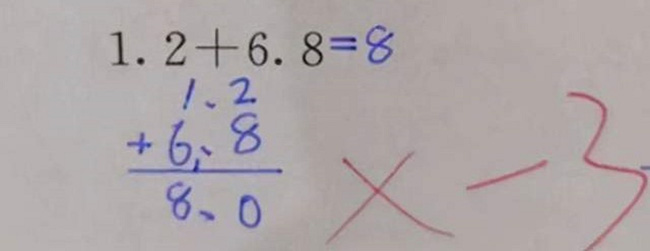 1.2+6.8=8
1.2
+6.8
8.0
× -3